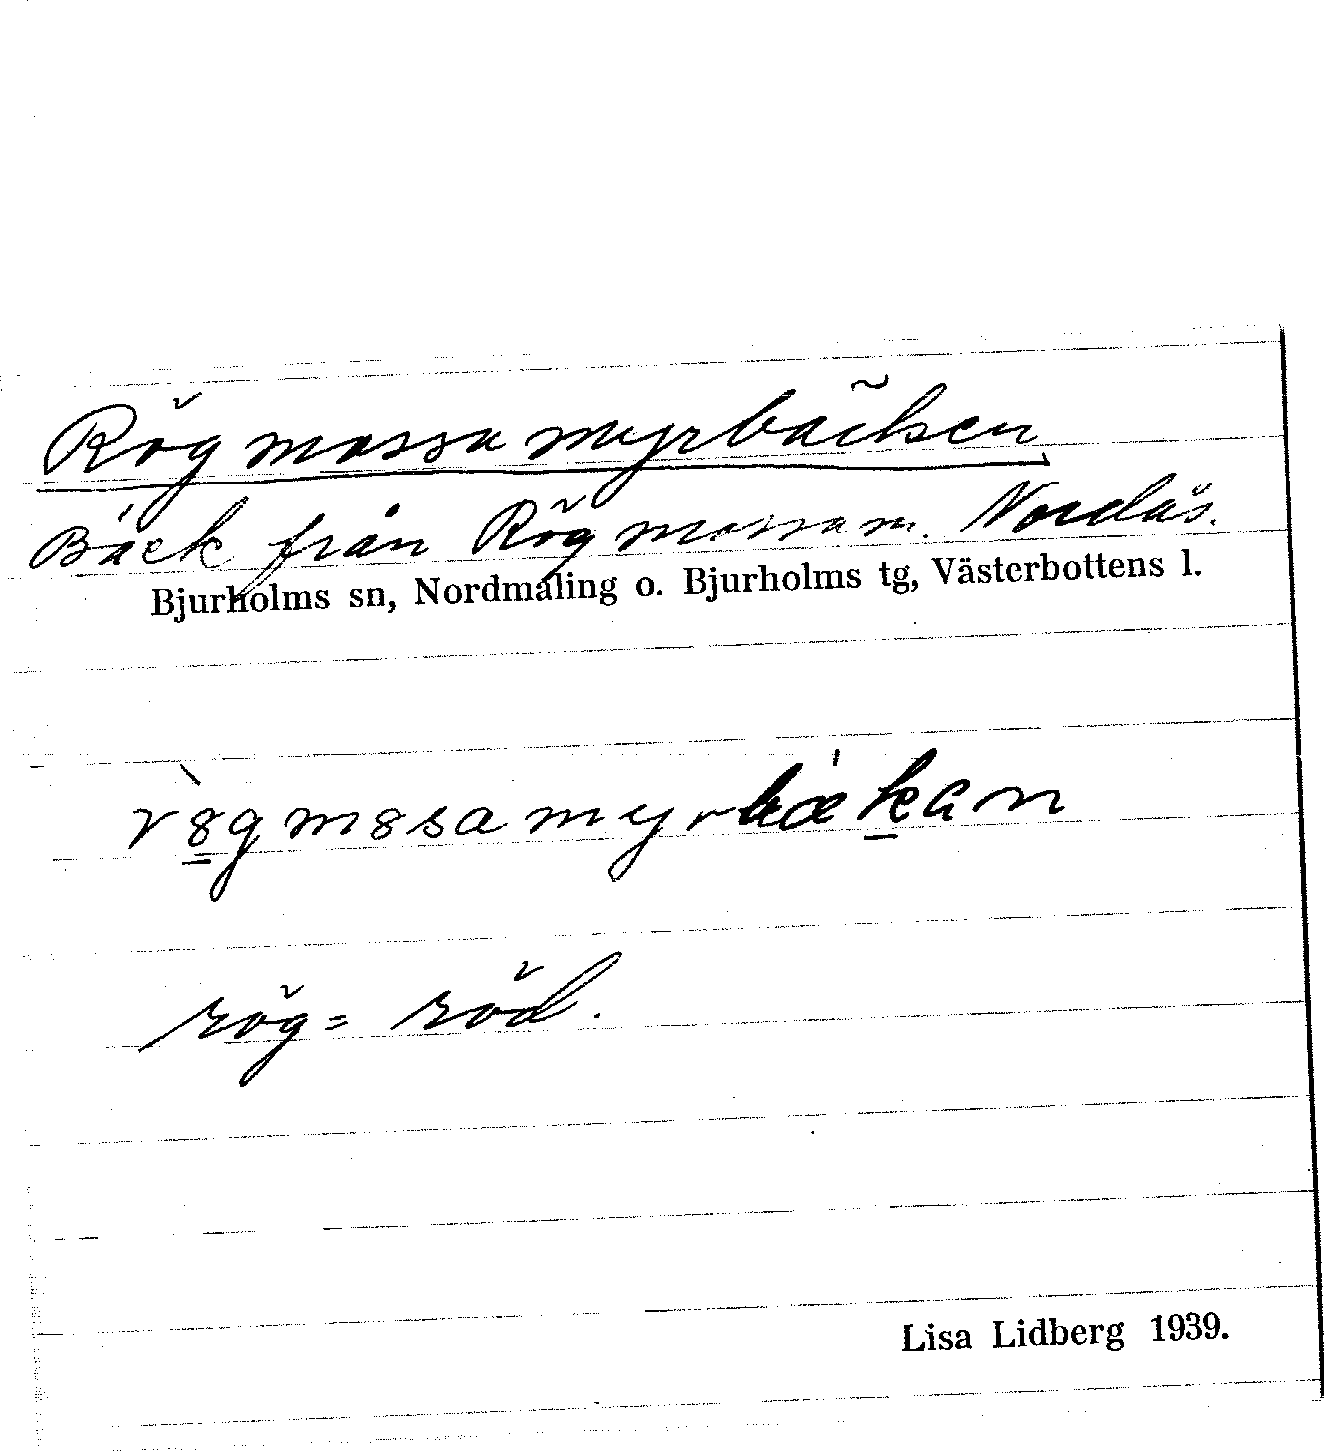 Rögmossamyrbäcken
Bäck från Rögmossam. Nordås.
Bjurholms sn, Nordmaling o. Bjurholms tg, Västerbottens l.
rögmosamyrbækan
rög = röd.
Lisa Lidberg 1939.